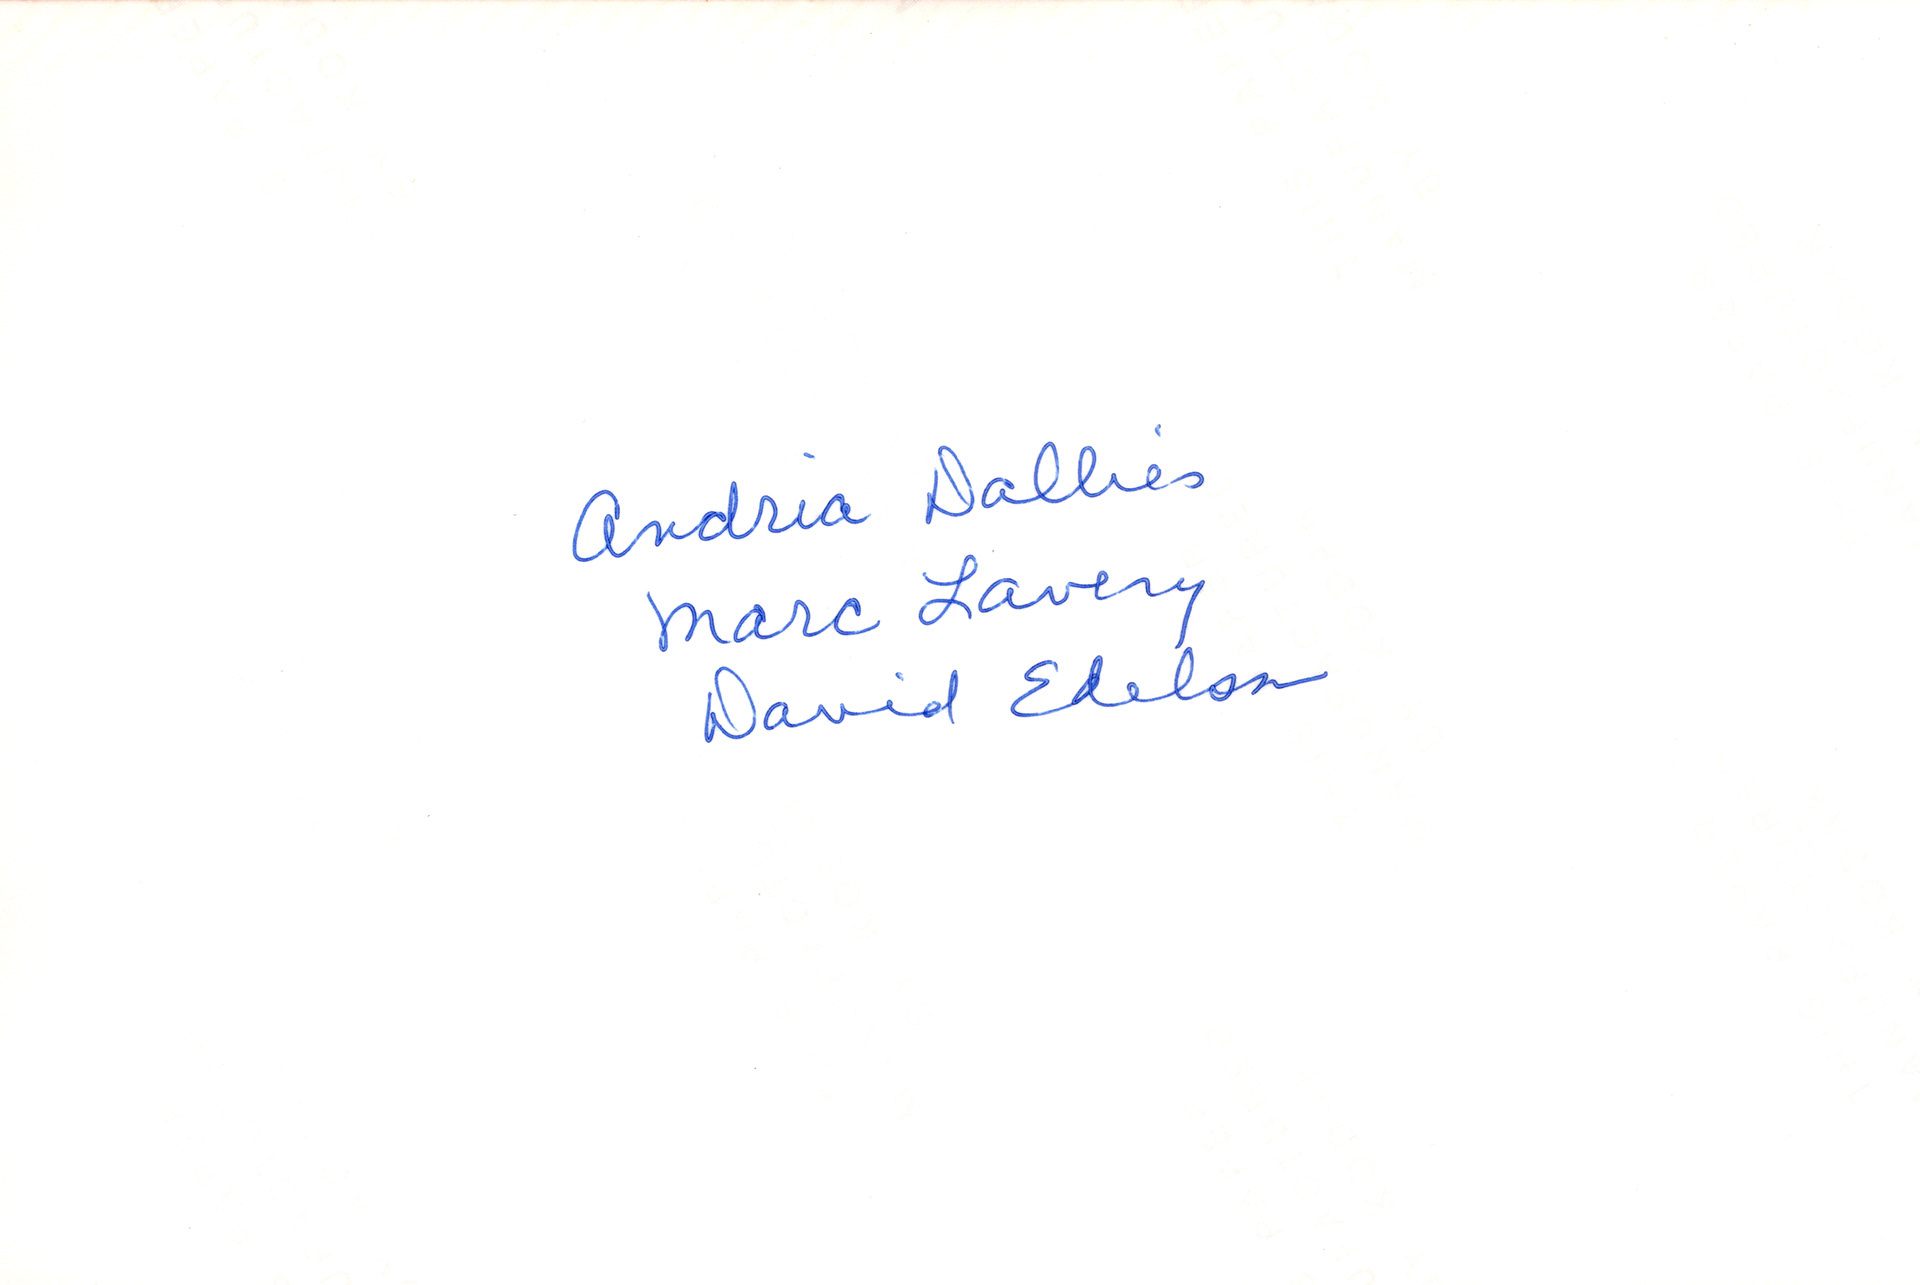 Andria Dallies
Marc Lavery
David Edelson